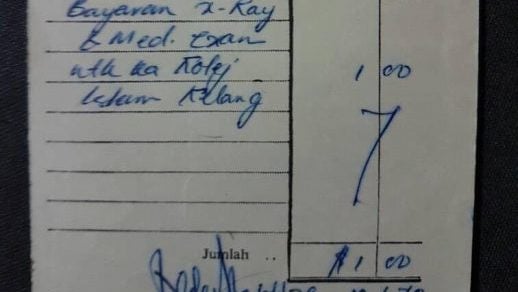 Bayaran X-Ray
& Med. Exam
utk ka Kolej
Islam Kelang
1 00
Jumlah .. $1 00